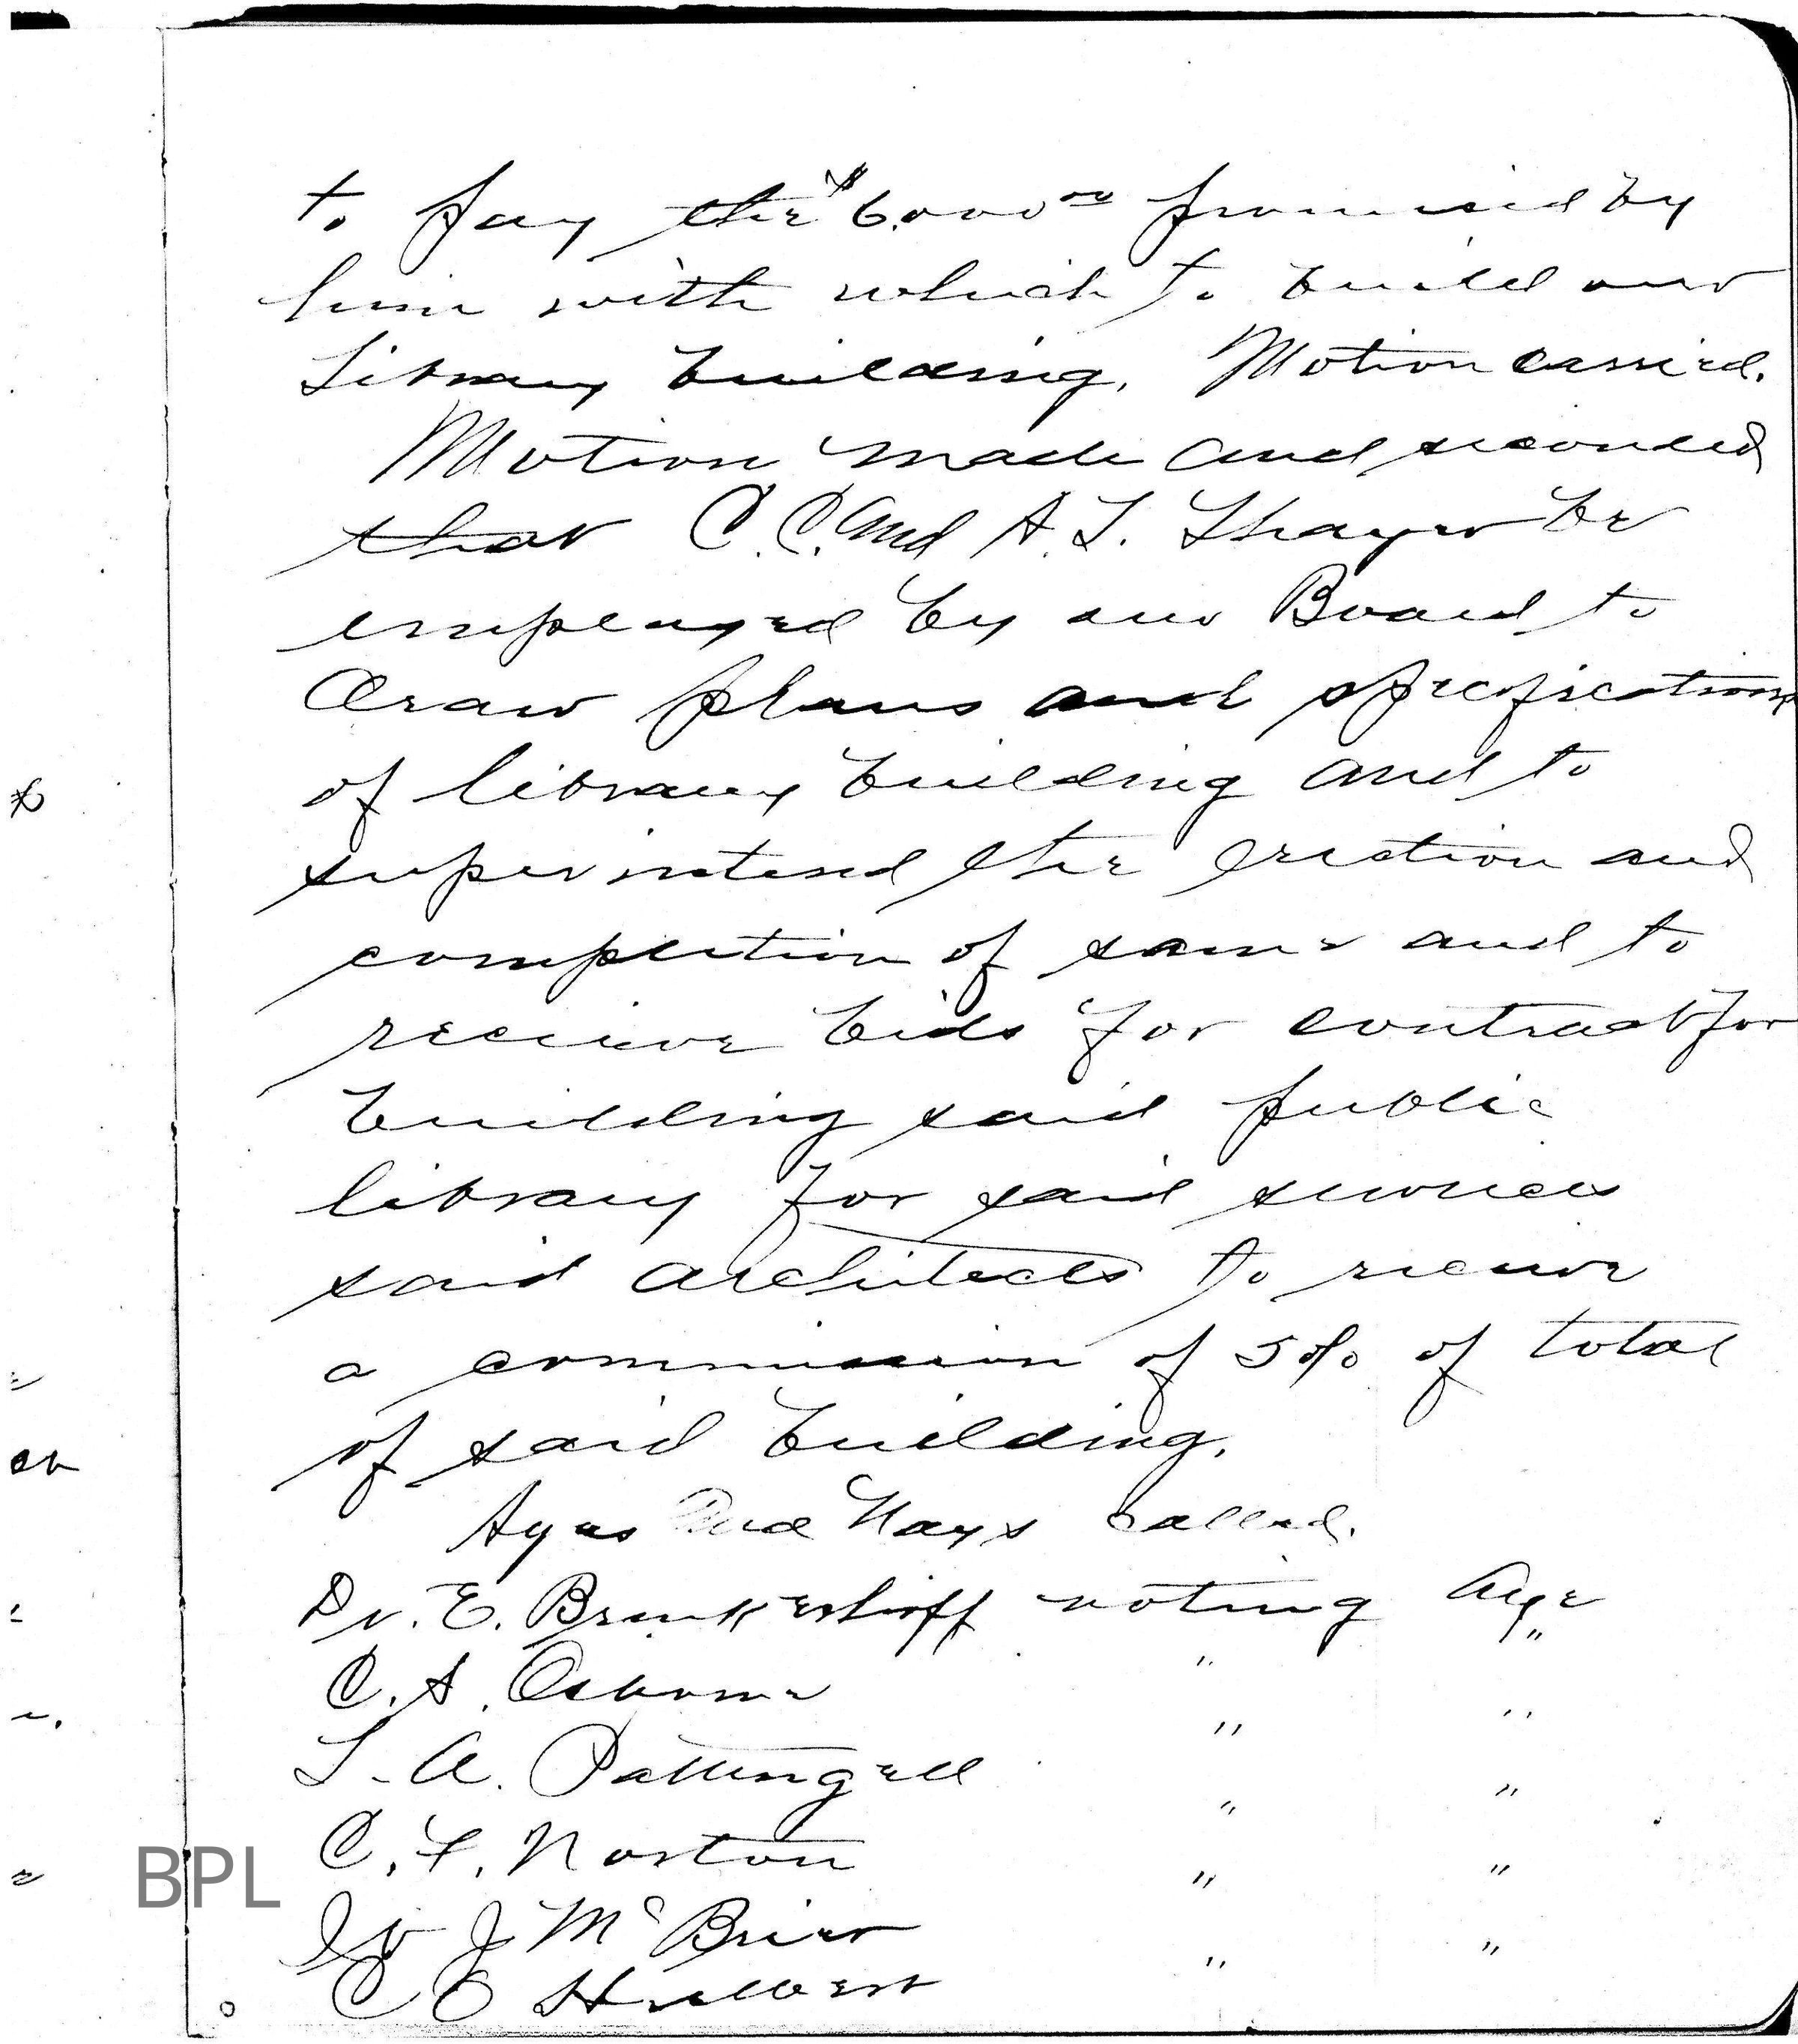 to pay the $6,000 00 promised by
him with which to build our
Library building. Motion carried.
Motion made and seconded
that C. C. and A. L. Thayer be
employed by our Board to
draw plans and specifications
of library building and to
superintend the erection and
completion of same and to
receive bids for contract for
building said public
library for said services
said architects to receive
a commission of 5% of total
of said building.
Ayes and Nays called.
Dr. E. Brinkerhoff voting Aye
C. S. Osborne " "
L. A. Pattengell " "
C. F. Norton " "
W J McBrier " "
C E Hulbert " "
BPL